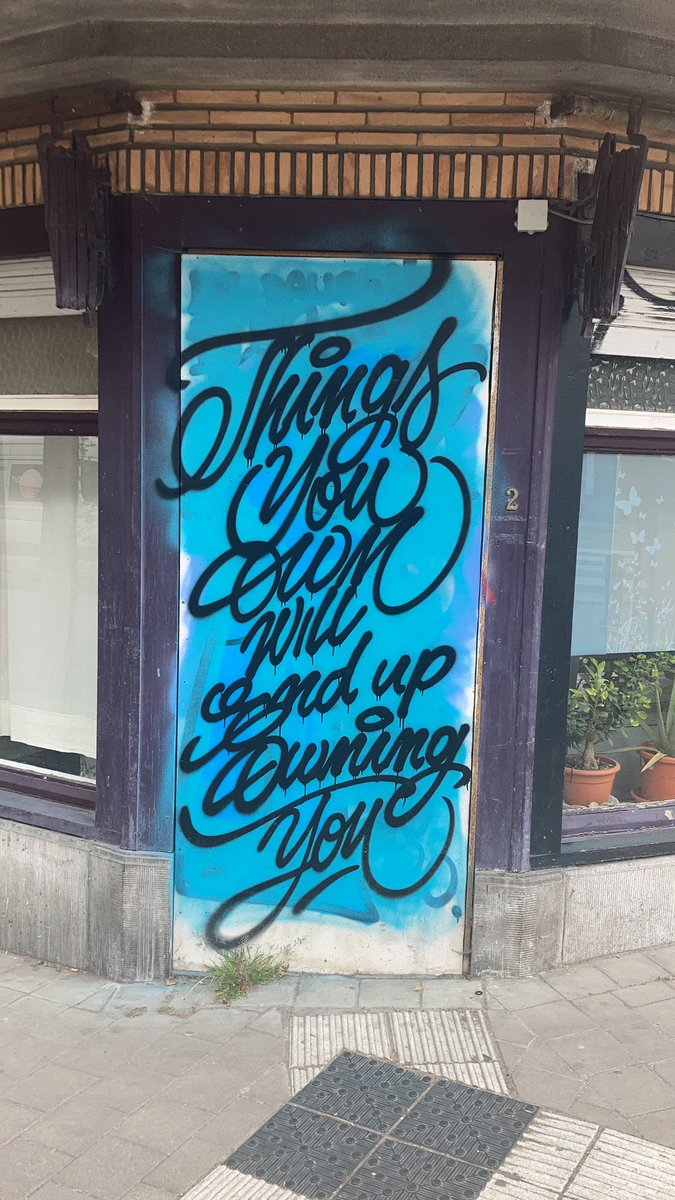 Things
You
Own
Will
End up
Owning
You
2